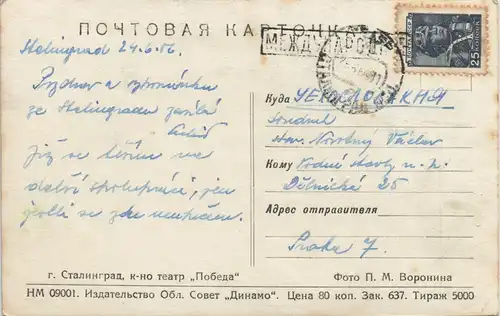 ПОЧТОВАЯ КАРТОЧКА
МЕЖДУНАРОД
25
Stalingrad 24.6.56.
Pozdrav a vzpomínku
ze Stalingradu zasílá
Již se těším na
dobrou spolupráci, jen
jestli se zde
Куда ЧЕХОСЛОВАКИЯ
Soudruh
Stav. Novotný Václav
Кому Vodní stavby n. p.
Dělnická 25
Адрес отправителя
Praha 7.
г. Сталинград, к-но театр „Победа"
Фото П. М. Воронина
НМ 09001. Издательство Обл. Совет „Динамо". Цена 80 коп. Зак. 637. Тираж 5000